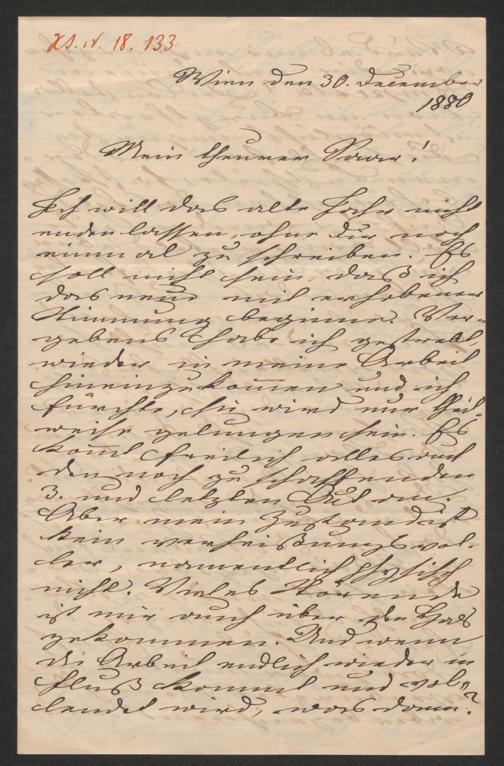 I. N. 18.133
Wien den 30. December
1880
Mein theurer Saar!
Ich will das alte Jahr nicht
enden lassen, ohne Dir noch
einmal zu schreiben. Es
soll nicht sein, daß ich
das neue mit erhobener
Stimmung beginne. Ver-
gebens habe ich gestrebt,
wieder in meine Arbeit
hineinzukommen und ich
fürchte, sie wird nur theil-
weise gelungen sein. Es
kommt freilich alles auf
den noch zu schaffenden
3. und letzten Act an.
Aber mein Zustand ist
kein verheißungsvol-
ler, namentlich physisch
nicht. Vieles Störende
ist mir auch über den Hals
gekommen. Und wenn
die Arbeit endlich wieder in
Fluß kommt und vol-
lendet wird, was dann?